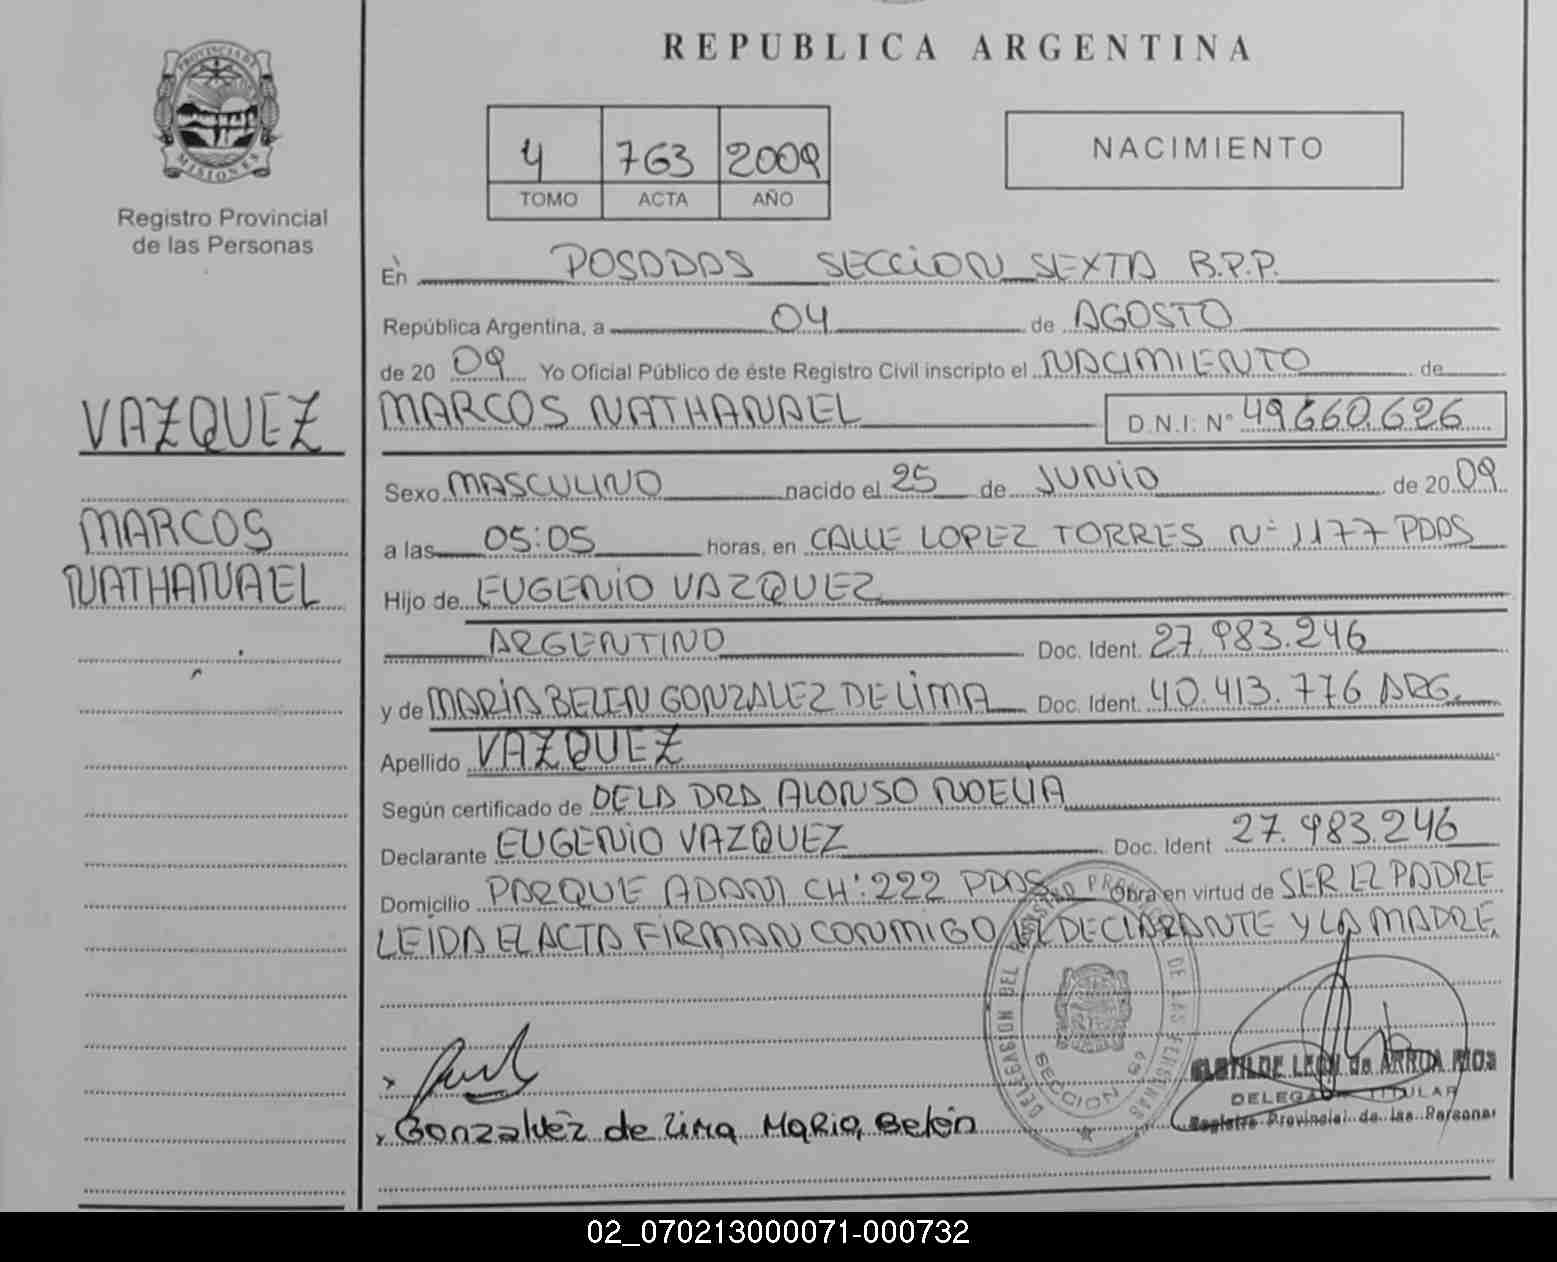 REPUBLICA ARGENTINA
PROVINCIA DE
MISIONES
Registro Provincial
de las Personas
4 763 2009
TOMO ACTA AÑO
NACIMIENTO
En POSADAS SECCION SEXTA B.P.P.
República Argentina, a 04 de AGOSTO
de 20 09 Yo Oficial Público de éste Registro Civil inscripto el NACIMIENTO de
VAZQUEZ
MARCOS NATHANAEL D.N.I: N° 49.660.626
Sexo MASCULINO nacido el 25 de JUNIO de 20 09
MARCOS
a las 05:05 horas, en CALLE LOPEZ TORRES Nº 1177 PDAS
NATHANAEL
Hijo de EUGENIO VAZQUEZ
ARGENTINO Doc. Ident. 27.983.246
y de MARIA BELEN GONZALEZ DE LIMA Doc. Ident. 40.413.776 ARG.
Apellido VAZQUEZ
Según certificado de DE LA DRA. ALONSO NOELIA
Declarante EUGENIO VAZQUEZ Doc. Ident 27.983.246
Domicilio PARQUE ADAM CH: 222 PDAS Obra en virtud de SER EL PADRE
LEIDA EL ACTA FIRMAN CONMIGO EL DECLARANTE Y LA MADRE.
DELEGACION DEL REGISTRO PROV. DE LAS PERSONAS
SECCION 6ª
CLOTILDE LEON de ARRUA RIOS
DELEGADA TITULAR
Registro Provincial de las Personas
Gonzalvez de Lima Maria, Belén
02_070213000071-000732